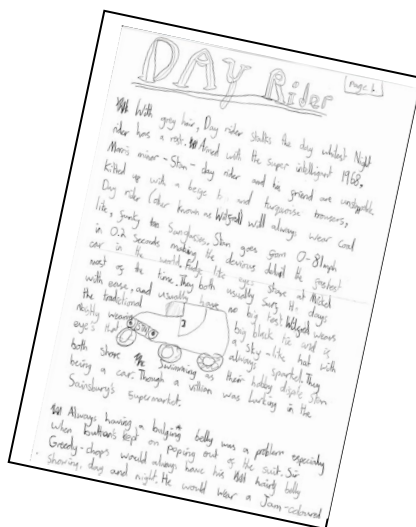 DAY Rider
Page 1
With grey hair, Day rider stalks the day whilst Night
rider has a rest. Armed with the super intelligent 1968,
Morris minor - Stan - day rider and his friend are unstoppable.
Kitted up with a beige and turquoise trousers,
Day rider (also known as Wilfred) will always wear cool
funky sunglasses. Stan goes from 0-81mph
in 0.2 seconds making the devious the fastest
car in the world.
most of the time. They both usually days
with ease, and usually have no big Wilfred wears
the traditional big black tie and is
mostly wearing a sky-lite hat with
eye's that always sparkel. They
both share swimming as their hobby dispite Stan
being a car. Though a villian was lurking in the
Sainsburg's supermarket.
Always having a bulging belly was a problem especially
when button's kept on poping out of the suit. Sir
Greedy-chops would always have his hairy belly
showing, day and night. He would wear a Jam-coloured